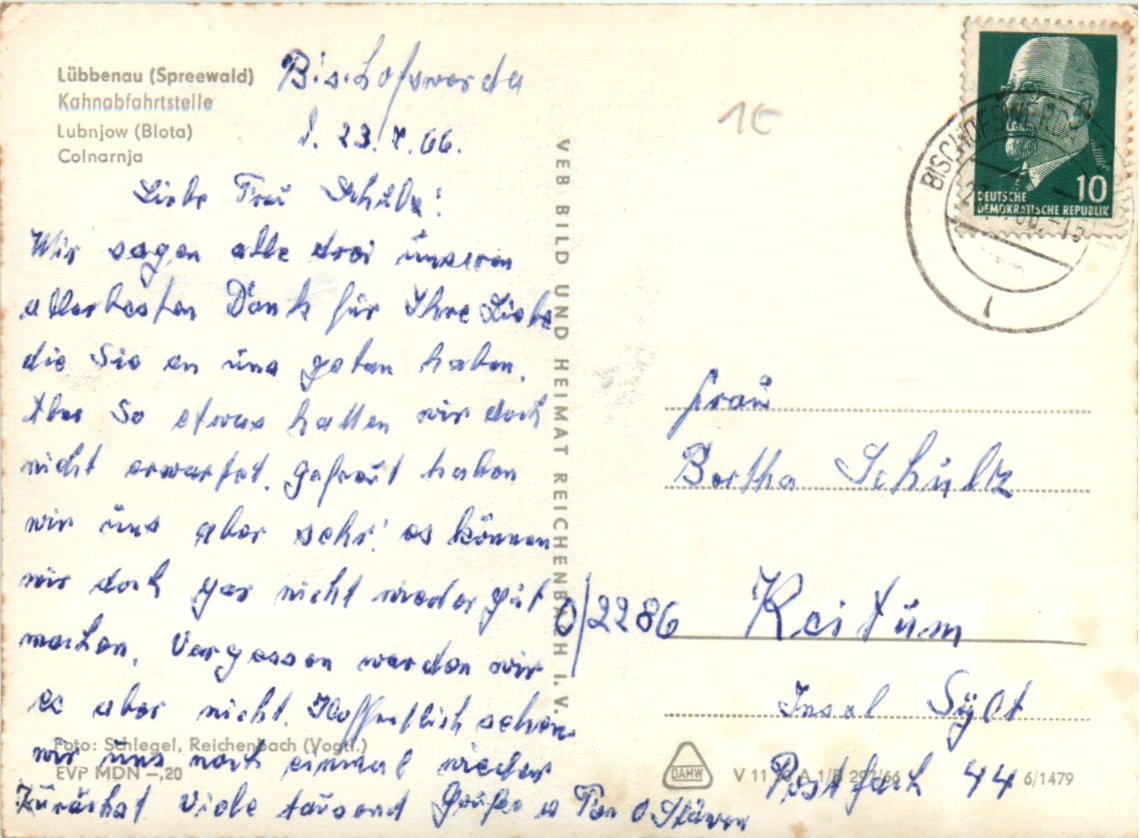 Lübbenau (Spreewald)
Kahnabfahrtstelle
Lubnjow (Błota)
Colnarnja
Bischofswerda
d. 23.7.66.
Liebe Frau Schulz!
Wir sagen alle drei unseren
allerbesten Dank für Ihre Liebe
die Sie an uns getan haben.
Aber so etwas hatten wir doch
nicht erwartet. Gefreut haben
wir uns aber sehr! es können
wir doch gar nicht wieder gut
machen. Vergessen werden wir
es aber nicht. Hoffentlich sehen
wir uns noch einmal wieder
Zunächst viele tausend Grüße
Foto: Schlegel, Reichenbach (Vogtl.)
EVP MDN –,20
VEB BILD UND HEIMAT REICHENBACH I. V.
1€
DEUTSCHE
DEMOKRATISCHE REPUBLIK
10
BISCHOFSWERDA
Frau
Bertha Schulz
0/2286 Keitum
Insel Sylt
Postfach 44
DAMW
6/1479